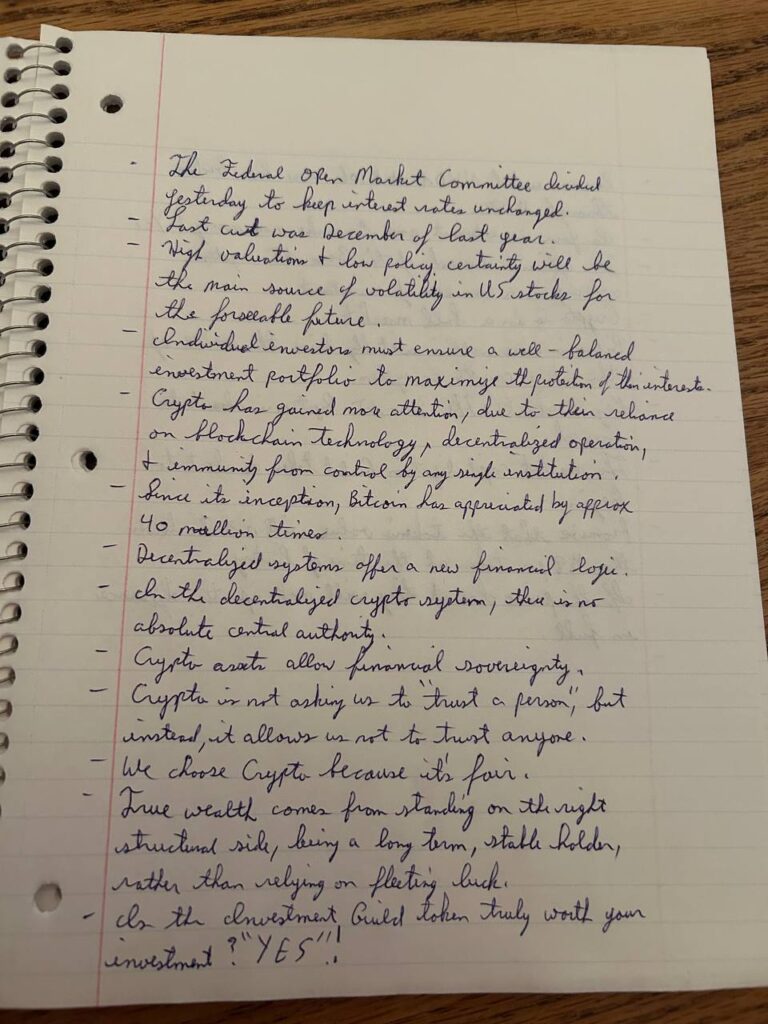 - The Federal Open Market Committee divided
yesterday to keep interest rates unchanged.
- Last cut was December of last year.
- High valuations + low policy certainty will be
the main source of volatility in US stocks for
the forseeable future.
- Individual investors must ensure a well-balanced
investment portfolio to maximize th protection of thin interests.
- Crypto has gained more attention, due to their reliance
on blockchain technology, decentralized operation,
+ immunity from control by any single institution.
- Since its inception, Bitcoin has appreciated by approx
40 million times.
- Decentralized systems offer a new financial logic.
- In the decentralized crypto system, there is no
absolute central authority.
- Crypto assets allow financial sovereignty.
- Crypto is not asking us to "trust a person", but
instead, it allows us not to trust anyone.
- We choose Crypto because it's fair.
- True wealth comes from standing on the right
structural side, being a long term, stable holder,
rather than relying on fleeting luck.
- Is the Investment Guild token truly worth your
investment? "YES"!